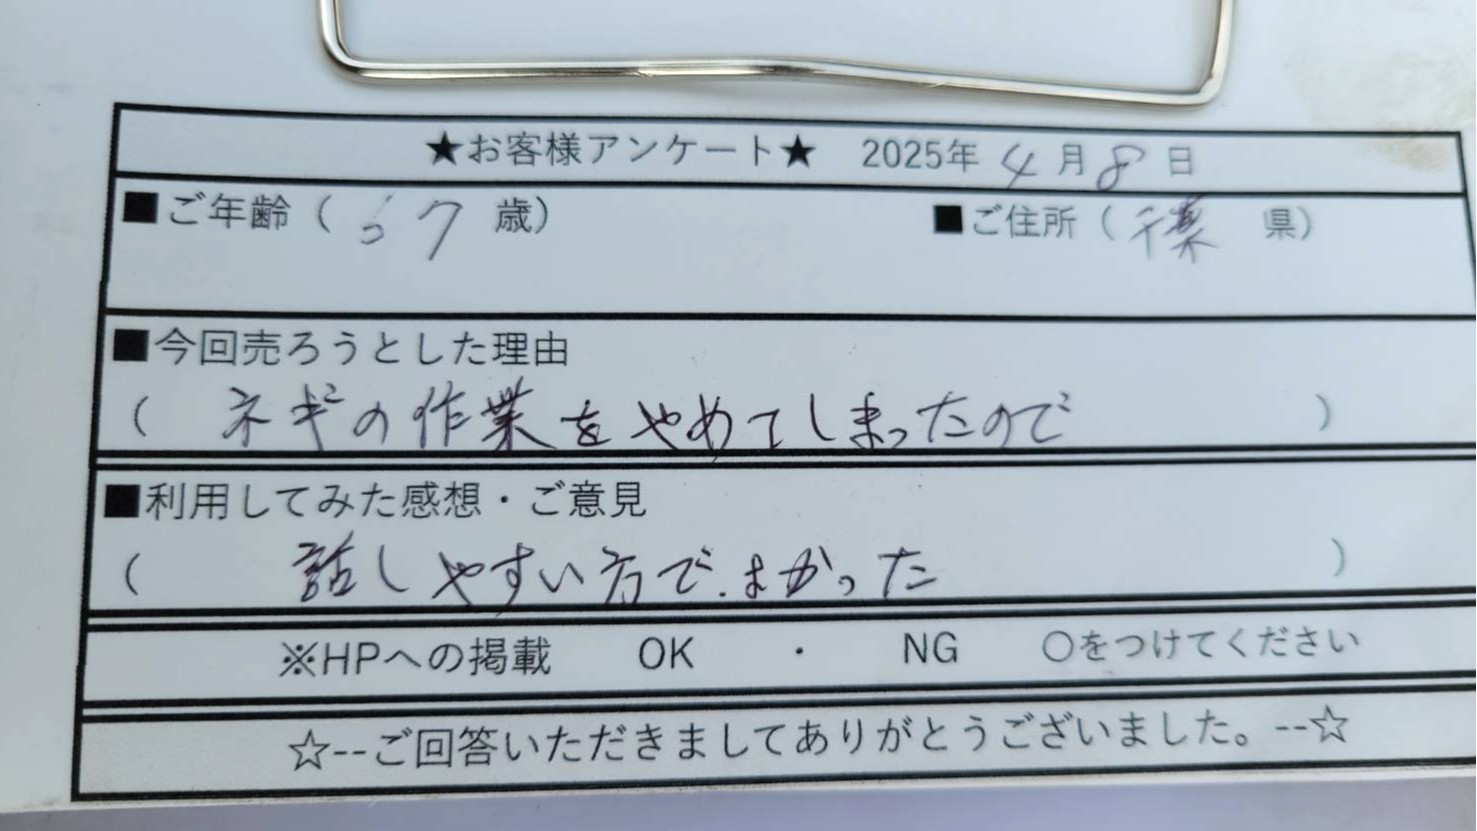 ★お客様アンケート★ 2025年 4月 8日
■ご年齢( 67 歳) ■ご住所(千葉 県)
■今回売ろうとした理由
( ネギの作業をやめてしまったので )
■利用してみた感想・ご意見
( 話しやすい方で.よかった )
※HPへの掲載 OK ・ NG ○をつけてください
☆--ご回答いただきましてありがとうございました。--☆